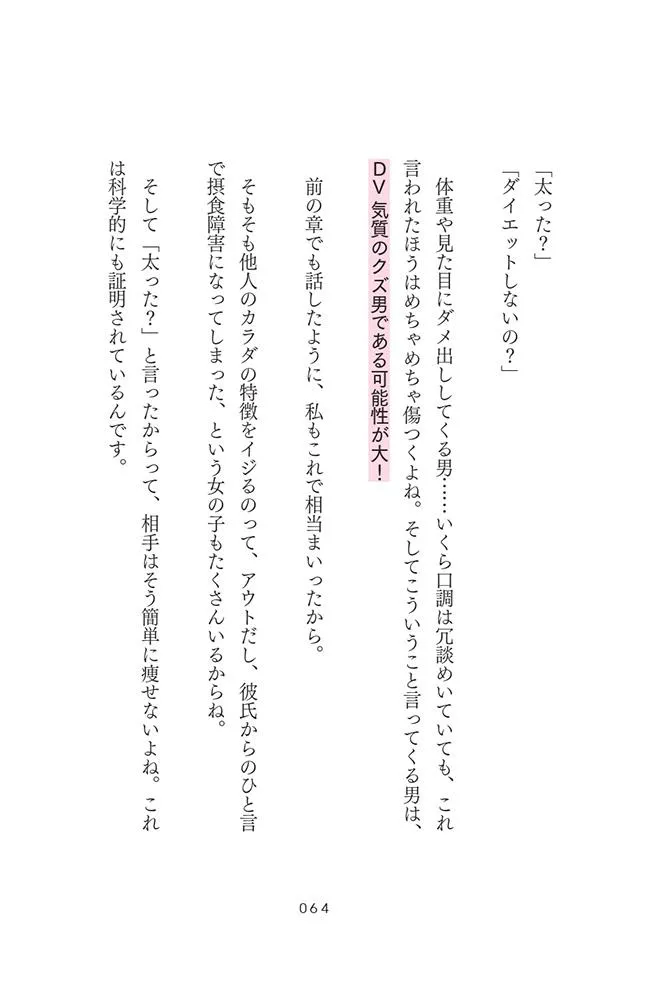 「太った？」
「ダイエットしないの？」
体重や見た目にダメ出ししてくる男……いくら口調は冗談めいていても、これ
言われたほうはめちゃめちゃ傷つくよね。そしてこういうこと言ってくる男は、
DV気質のクズ男である可能性が大！
前の章でも話したように、私もこれで相当まいったから。
そもそも他人のカラダの特徴をイジるのって、アウトだし、彼氏からのひと言
で摂食障害になってしまった、という女の子もたくさんいるからね。
そして「太った？」と言ったからって、相手はそう簡単に痩せないよね。これ
は科学的にも証明されているんです。
064